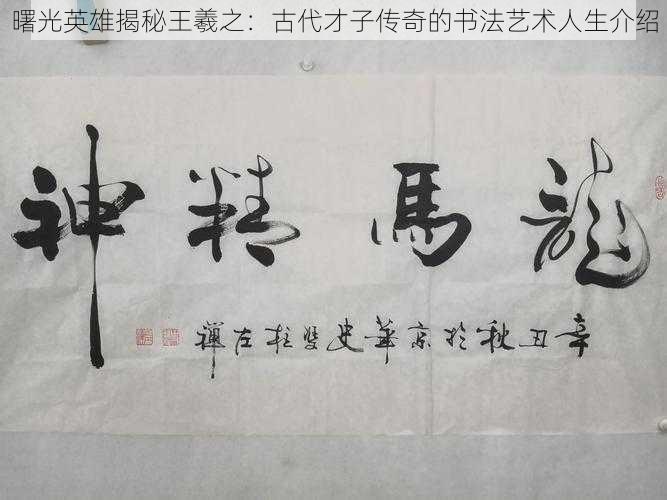 曙光英雄揭秘王羲之：古代才子传奇的书法艺术人生介绍
龍馬精神
辛丑秋於京華史堅柱左禪